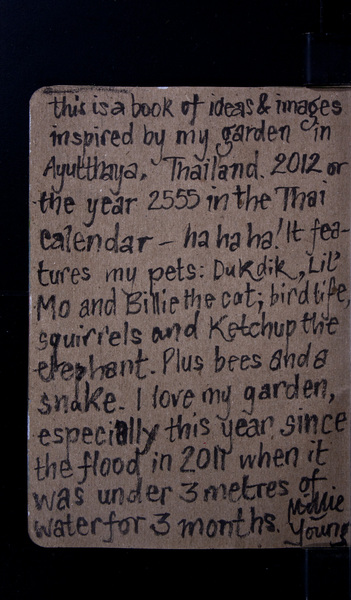 this is a book of ideas & images
inspired by my garden in
Ayutthaya, Thailand. 2012 or
the year 2555 in the Thai
calendar - ha ha ha! It fea-
tures my pets: Dukdik, Lil'
Mo and Billie the cat; bird life,
squirrels and Ketchup the
elephant. Plus bees and a
snake. I love my garden,
especially this year, since
the flood in 2011 when it
was under 3 metres of
water for 3 months. Millie
Young